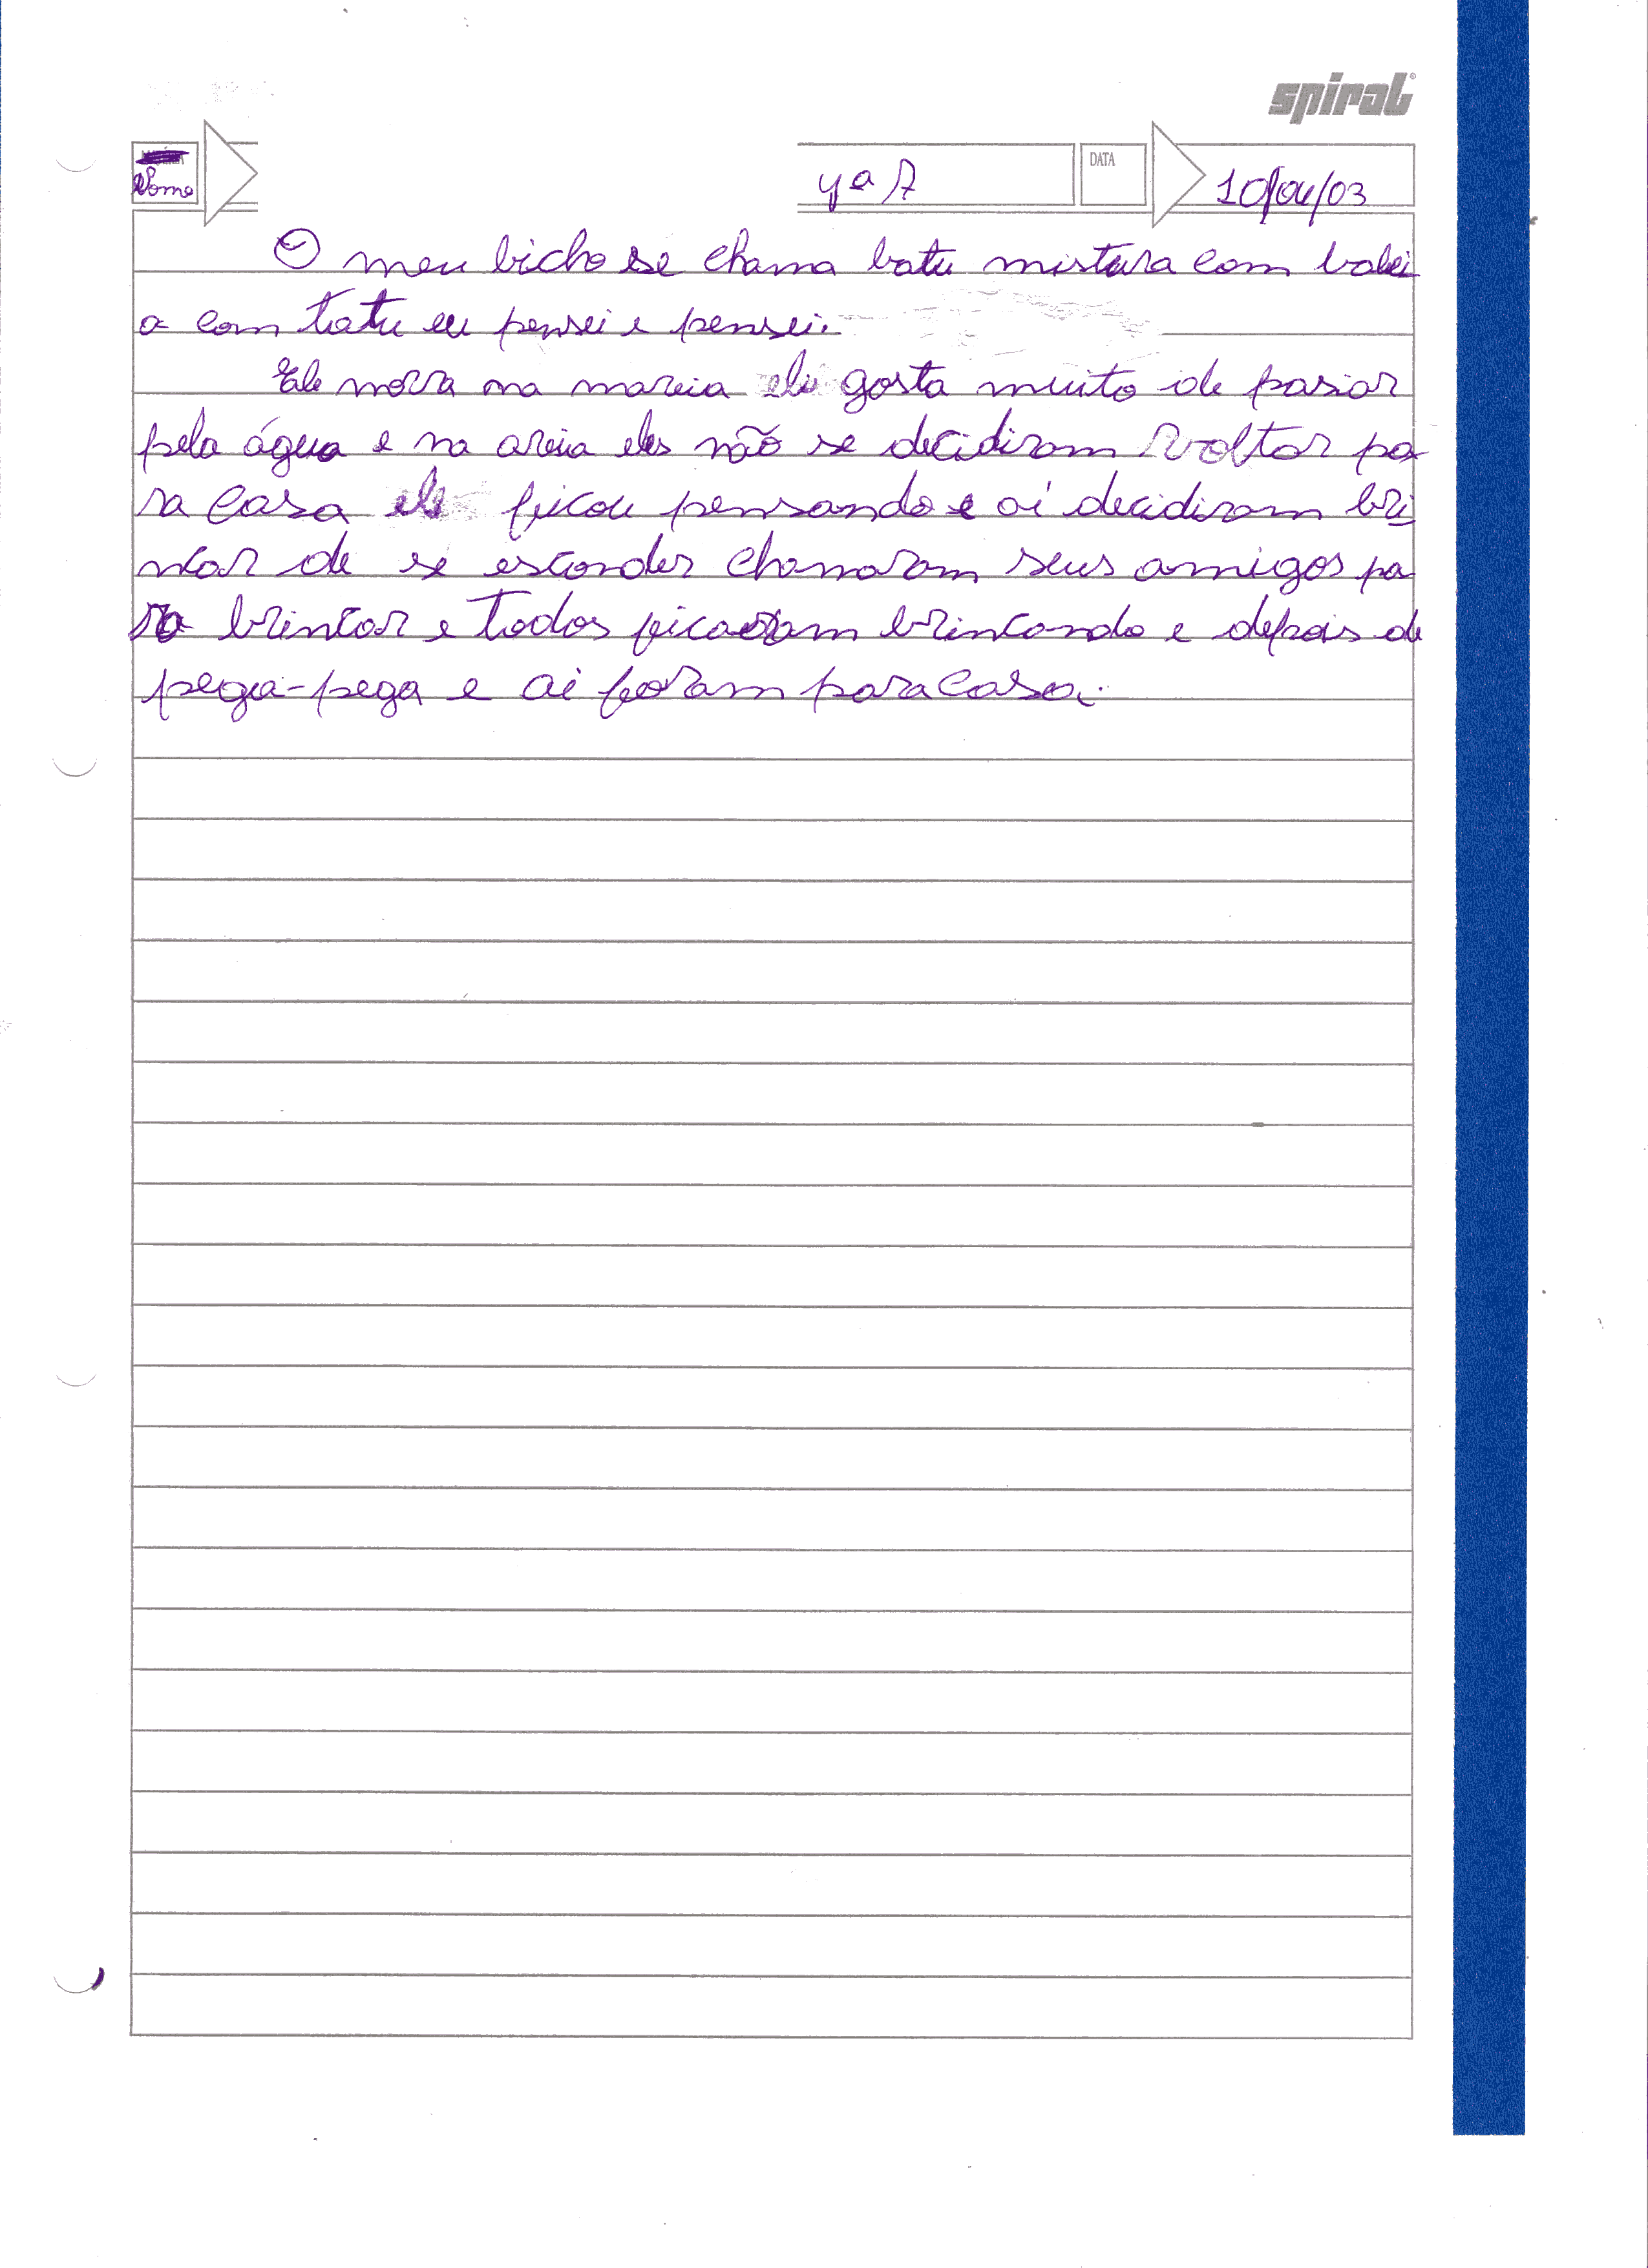 spiral
Nome 4ª A DATA 10/04/03
O meu bicho se chama batu mistura com balei
a com tatu eu pensei e pensei.
Ele mora na mareia ele gosta muito de pasiar
pela água e na areia eles não se decidiram voltar pa-
ra casa ele ficou pensando e aí decidiram bri
ncar de se esconder chamaram seus amigos pa
ra brincar e todos ficaram brincando e depois de
pega-pega e ai foram para casa.